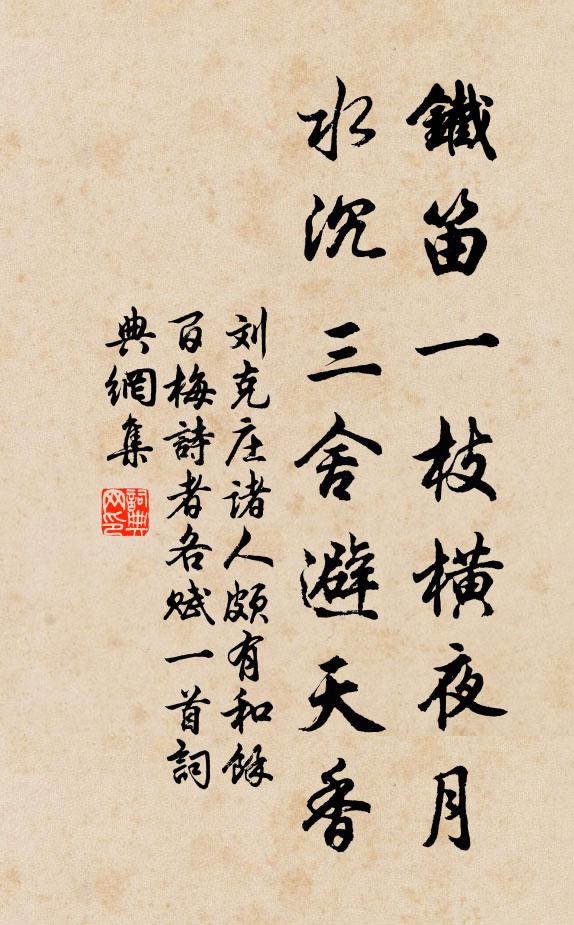 鐵笛一枝橫夜月
水沉三舍避天香
刘克庄诸人頗有和餘
百梅詩者各赋一首詞
典網集
詞典网印